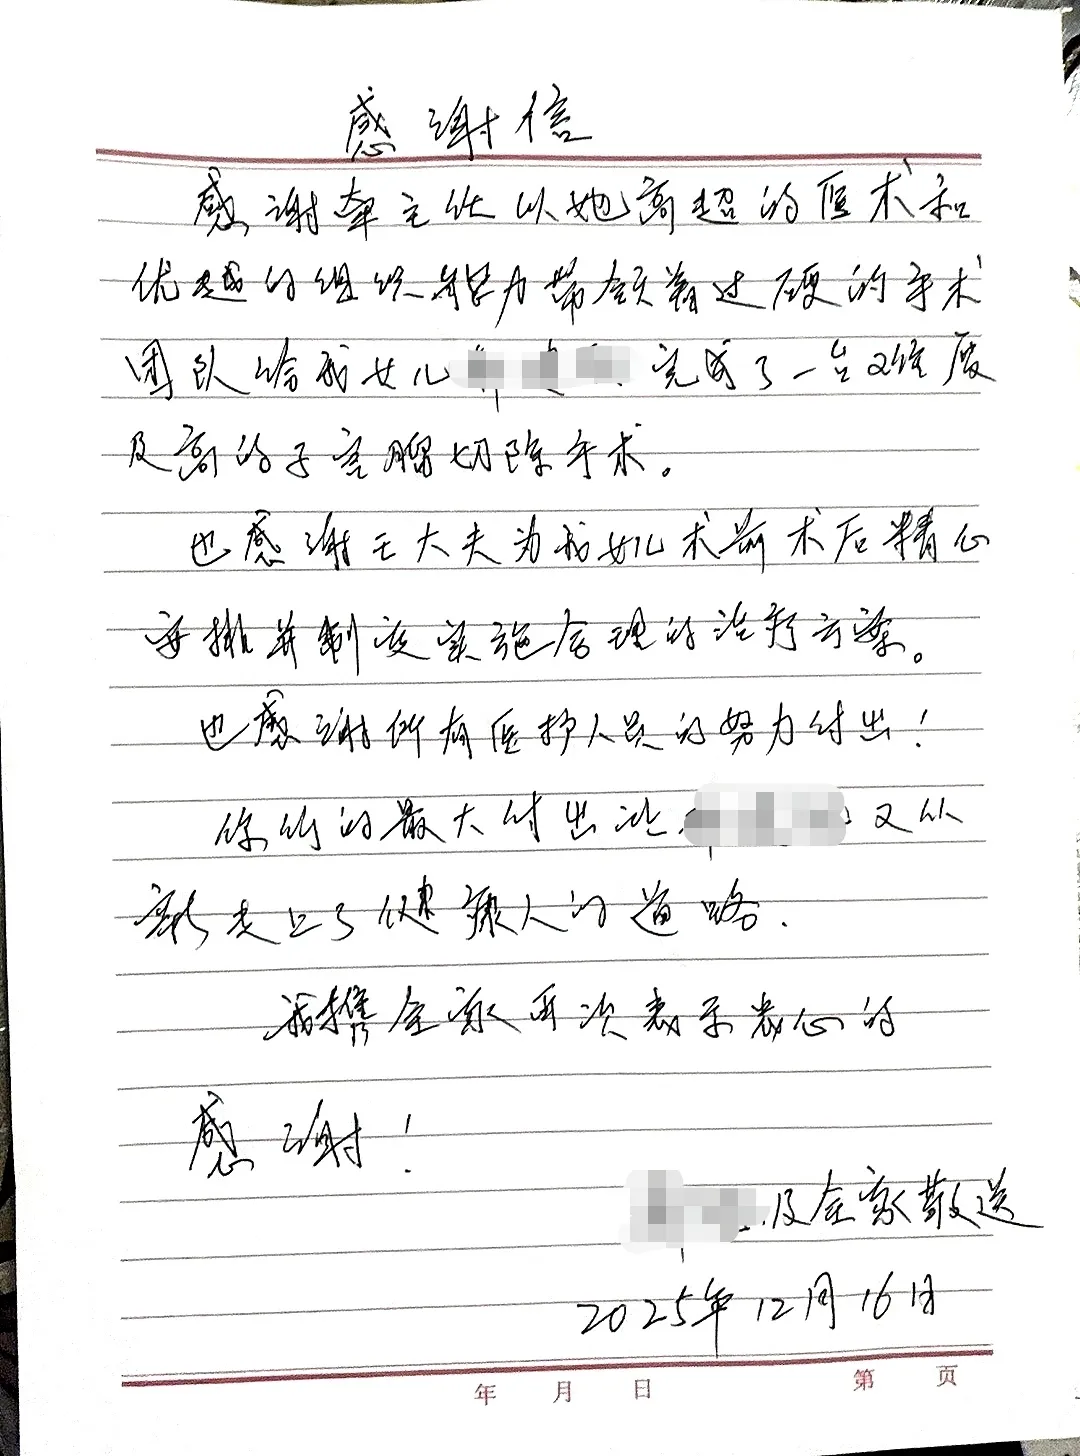 感谢信
感谢牵主任以她高超的医术和
优越的组织能力带领着过硬的手术
团队给我女儿 完成了一台难度
及高的子宫瘤切除手术。
也感谢王大夫为我女儿术前术后精心
安排并制度实施合理的治疗方案。
也感谢所有医护人员的努力付出！
你们的最大付出让 又从
新走上了健康人的道路.
我携全家再次表示衷心的
感谢！
及全家敬送
2025年12月16日
年 月 日 第 页